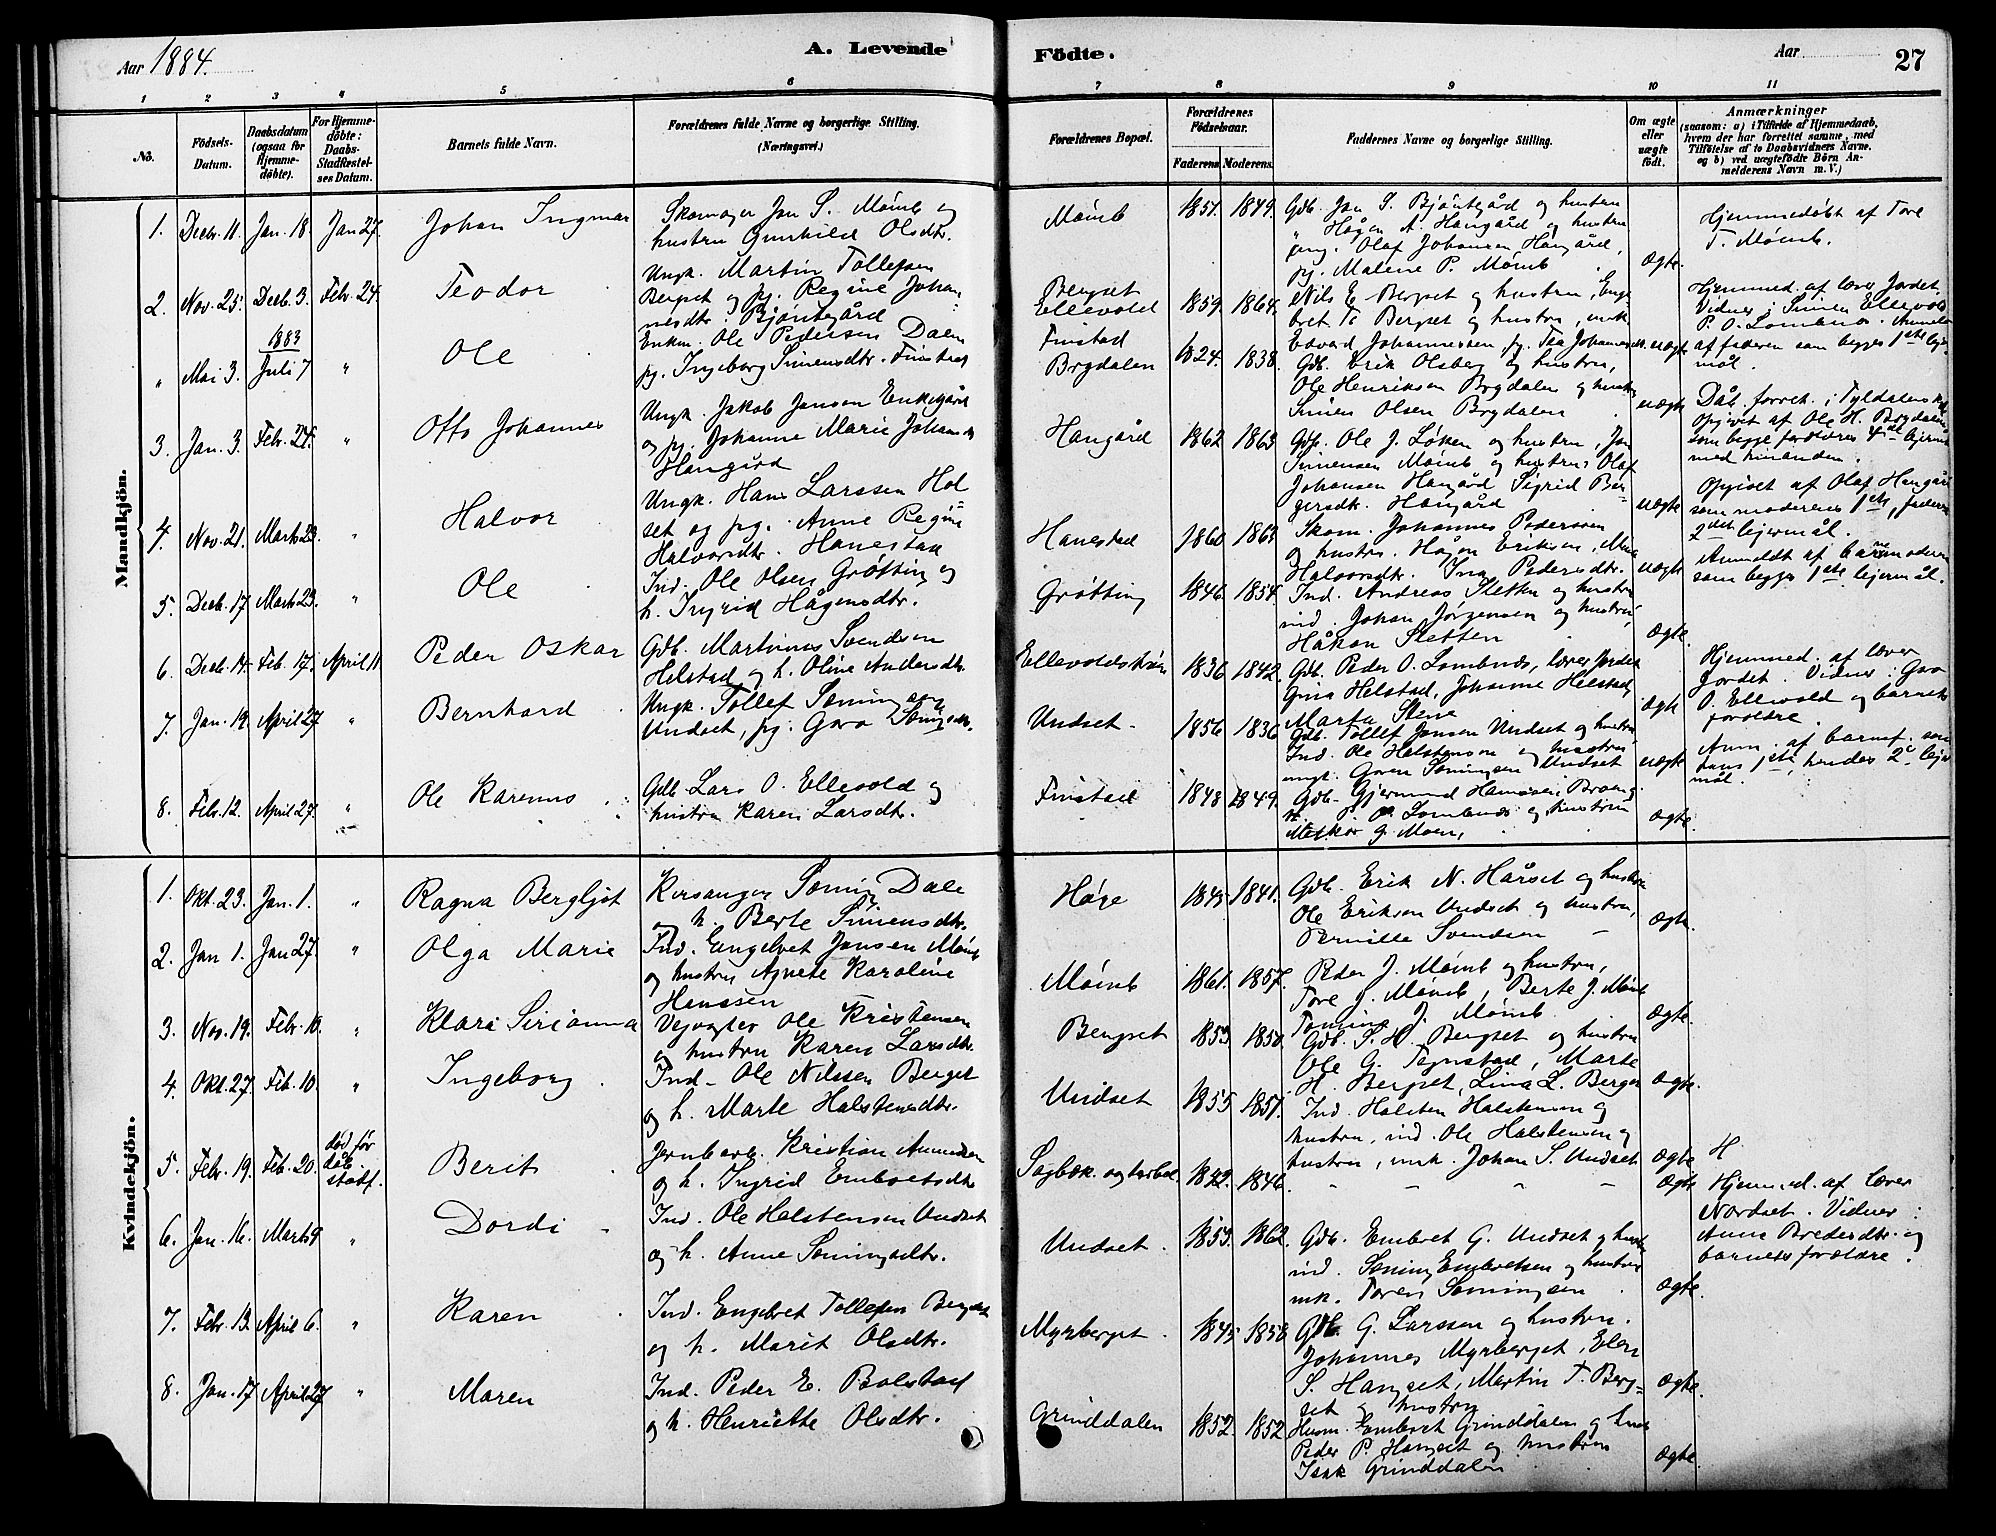 Aar 1884.
A. Levende
Födte.
Aar
27
1 2 3 4 5 6 7 8 9 10 11
No.
Födsels-Datum.
Daabsdatum (ogsaa for Hjemme-döbte).
For Hjemme-döbte: Daabs-Stadfæstel-ses Datum.
Barnets fulde Navn.
Forældrenes fulde Navne og borgerlige Stilling. (Næringsvei.)
Forældrenes Bopæl.
Forældrenes Födselsaar.
Faderens. Moderens.
Faddernes Navne og borgerlige Stilling.
Om ægte eller uægte födt.
Anmærkninger
(saasom: a) i Tilfælde af Hjemmedaab, hvem der har forrettet samme, med Tilföielse af to Daabsvidners Navne, og b) ved uægtefödte Börn An-melderens Navn m. V.)
Mandkjön.
1. Decb. 11. Jan. 18. Jan 27. Johan Ingmar
Skomager Jon S. Moimb og
hustru Gunhild Olsdtr.
Moimb 1851. 1849.
Gdb. Jon S. Bjöntgård og hustru
Hågen A. Hangård og hustru
ung. Olaf Johansen Hangård,
pg. Malene P. Moimb
ægte.
Hjemmedöbt af Tore
T. Moimb.
2. Nov. 25. Decb. 3. Febr. 24. Teodor
Ungk. Martin Tollefsen
Bergset og pg. Regine Johan-
nesdtr. Bjöntegård
Bergset
Ellevold 1859. 1864.
Nils E. Bergset og hustru, Enge-
bret T. Bergset og hustru, unk
Edvard Johannessen, pg. Tea Johannesdt.
uægte
Hjemmed. af lærer Jordet,
Vidner: Simen Ellevold
P. O. Lombnes. Anmeldt
af faderen som begges 1ste leier-
mål.
1883
" Mai 3. Juli 7 " Ole
Enkm. Ole Pedersen Dalen
pg. Ingeborg Simensdtr. Finstad
Finstad
Brydalen 1824. 1838.
Gdb. Erik Olsberg og hustru,
Ole Henriksen Brydalen og hustru
Simen Olsen Brydalen
uægte
Dåb. forret. i Tyldalens k.
Opgivet af Ole H. Brydalen
som begge forældres 4de lejermål
med hinanden.
3. Jan. 3. Febr. 24. " Otto Johannes
Ungk. Jakob Jonsen Enkegård
og pg. Johanne Marie Johansdt.
Hangård
Hangård 1862 1863
Gdb. Ole J. Løken og hustru, Jon
Simensen Moimb og hustru Olaf
Johansen Hangård Sigrid Ber-
gersdt. Hangård
uægte
Opgivet af Olaf Hangård
som moderens 1ste, faderens
2det lejermål.
4. Nov. 21. Marts 23. " Halvor
Ungk. Hans Larssen Hol-
set og pg. Anne Regine
Halvorsdtr. Hanestad
Hanestad 1860 1863
Skom. Johannes Pedersen
og hustru. Hågen Eriksen, Mari
Halvorsdtr. Ina Pedersdtr.
uægte
Anmeldt af barnemoderen
som begges 1ste lejermål.
5. Decb. 17 Marts 23. " Ole
Ind. Ole Olsen Grötting og
h. Ingrid Hågensdtr.
Grötting 1846. 1854.
Ind. Andreas Sletten og hustru
ind. Johan Jörgensen og hustru
Håkon Sletten
ægte.
6. Decb. 14. Feb. 17. April 11 Peder Oskar
Gdb. Martinus Svendsen
Helstad og h. Oline Andersdtr.
Ellevoldstrøen 1836 1842.
Gdb. Peder O. Lombnes, lærer Jordet
Gina Helstad, Johanne Helstad,
Marta Stene
ægte
Hjemmed. af lærer
Jordet. Vidner: Guro
O. Ellevold og barnets
forældre.
7. Jan. 19. April 27 " Bernhard
Ungk. Tollef Somingsen
Undset, pg. Guro Somingsdtr.
Undset. 1856 1836
Gdb. Tollef Jonsen Undset og hustru,
Ind. Ole Halstensen og hustru
ungk. Goen Somingsen Undset
uægte
Anm. af barnef. som
hans 1ste, hendes 2d lejer-
mål.
8. Febr. 12. April 27. " Ole Karenius
Gdb. Lars O. Ellevold og
hustru Karen Larsdtr.
Finstad 1848 1849.
Gdb. Gjermund Hanssen
P. O. Lombnes og hustru
G. Moen,
ægte.
Kvindekjön.
1. Okt. 23. Jan. 1. " Ragna Bergljot
Kirsanger Soming Dale
og h. Berte Simensdtr.
Høye 1845 1841.
Gdb. Erik N. Hårset og hustru
Ole Eriksen Undset og hustru,
Pernille Svendsen
ægte.
2. Jan 1. Jan 27. " Olga Marie
Ind. Engebret Jonsen Moimb
og hustru Agnete Karoline
Henssen
Moimb 1861. 1857.
Peder J. Moimb og hustru,
Tore J. Moimb, Berte J. Moimb
Tomine J. Moimb
ægte.
3. Nov. 19. Febr. 10. " Klara Sirianna
Vejvogter Ole Kristensen
og hustru Karen Larsdtr.
Bergset 1853 1850.
Gdb. S. H. Bergset og hustru
Ole G. Tegnstad, Marte
H. Bergset, Lina L. Berget
ægte.
4. Okt. 27. Feb. 10 " Ingeborg
Ind. Ole Nilssen Berget
og h. Marte Halstensdtr.
Undset 1855 1851.
Ind. Halsten Halstensen og
hustru, ind. Ole Halstensen og
hustru, unk. Johan S. Undset
ægte
5. Febr. 19. Feb. 20. død før dåb stadf. Berit
Jernbarb. Kristian Amundsen
og h. Ingrid Embretsdtr.
1842. 1846.
" " " "
ægte
H
Hjemmed. af lærer
Nordset. Vidner:
Anne Bredesdtr. og
barnets forældre.
6. Jan. 16. Marts 9 " Dordi
Ind. Ole Halstensen Undset
og h. Anne Somingsdtr.
Undset. 1853. 1862.
Gdb. Embret G. Undset og hustru
ind. Soming Embretsen og hustru
unk. Toren Somingsen
ægte.
7. Febr. 13. April 6. " Karen
Ind. Engebret Tollefsen Bergset
og h. Marit Olsdtr.
Myrberget. 1845 1858
Gdb. G. Larssen og hustru.
Johannes Myrberget, Elen
S. Hangset, Martin T. Berg-
set og hustru
ægte.
8. Jan. 17 April 27 " Maren
Ind. Peder E. Bolstad
og h. Henriette Olsdtr.
Grinddalen 1852. 1852
Husm. Embret Grinddalen og hust.
Peder P. Hangset og hustru
Isak Grinddalen
ægte.